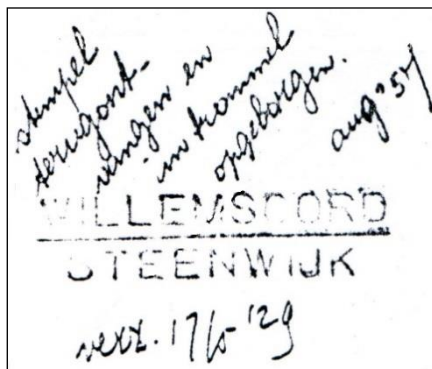 stempel
terugont-
vangen en
in trommel
opgeborgen.
aug '57
WILLEMSOORD
STEENWIJK
verz. 17/5 '29